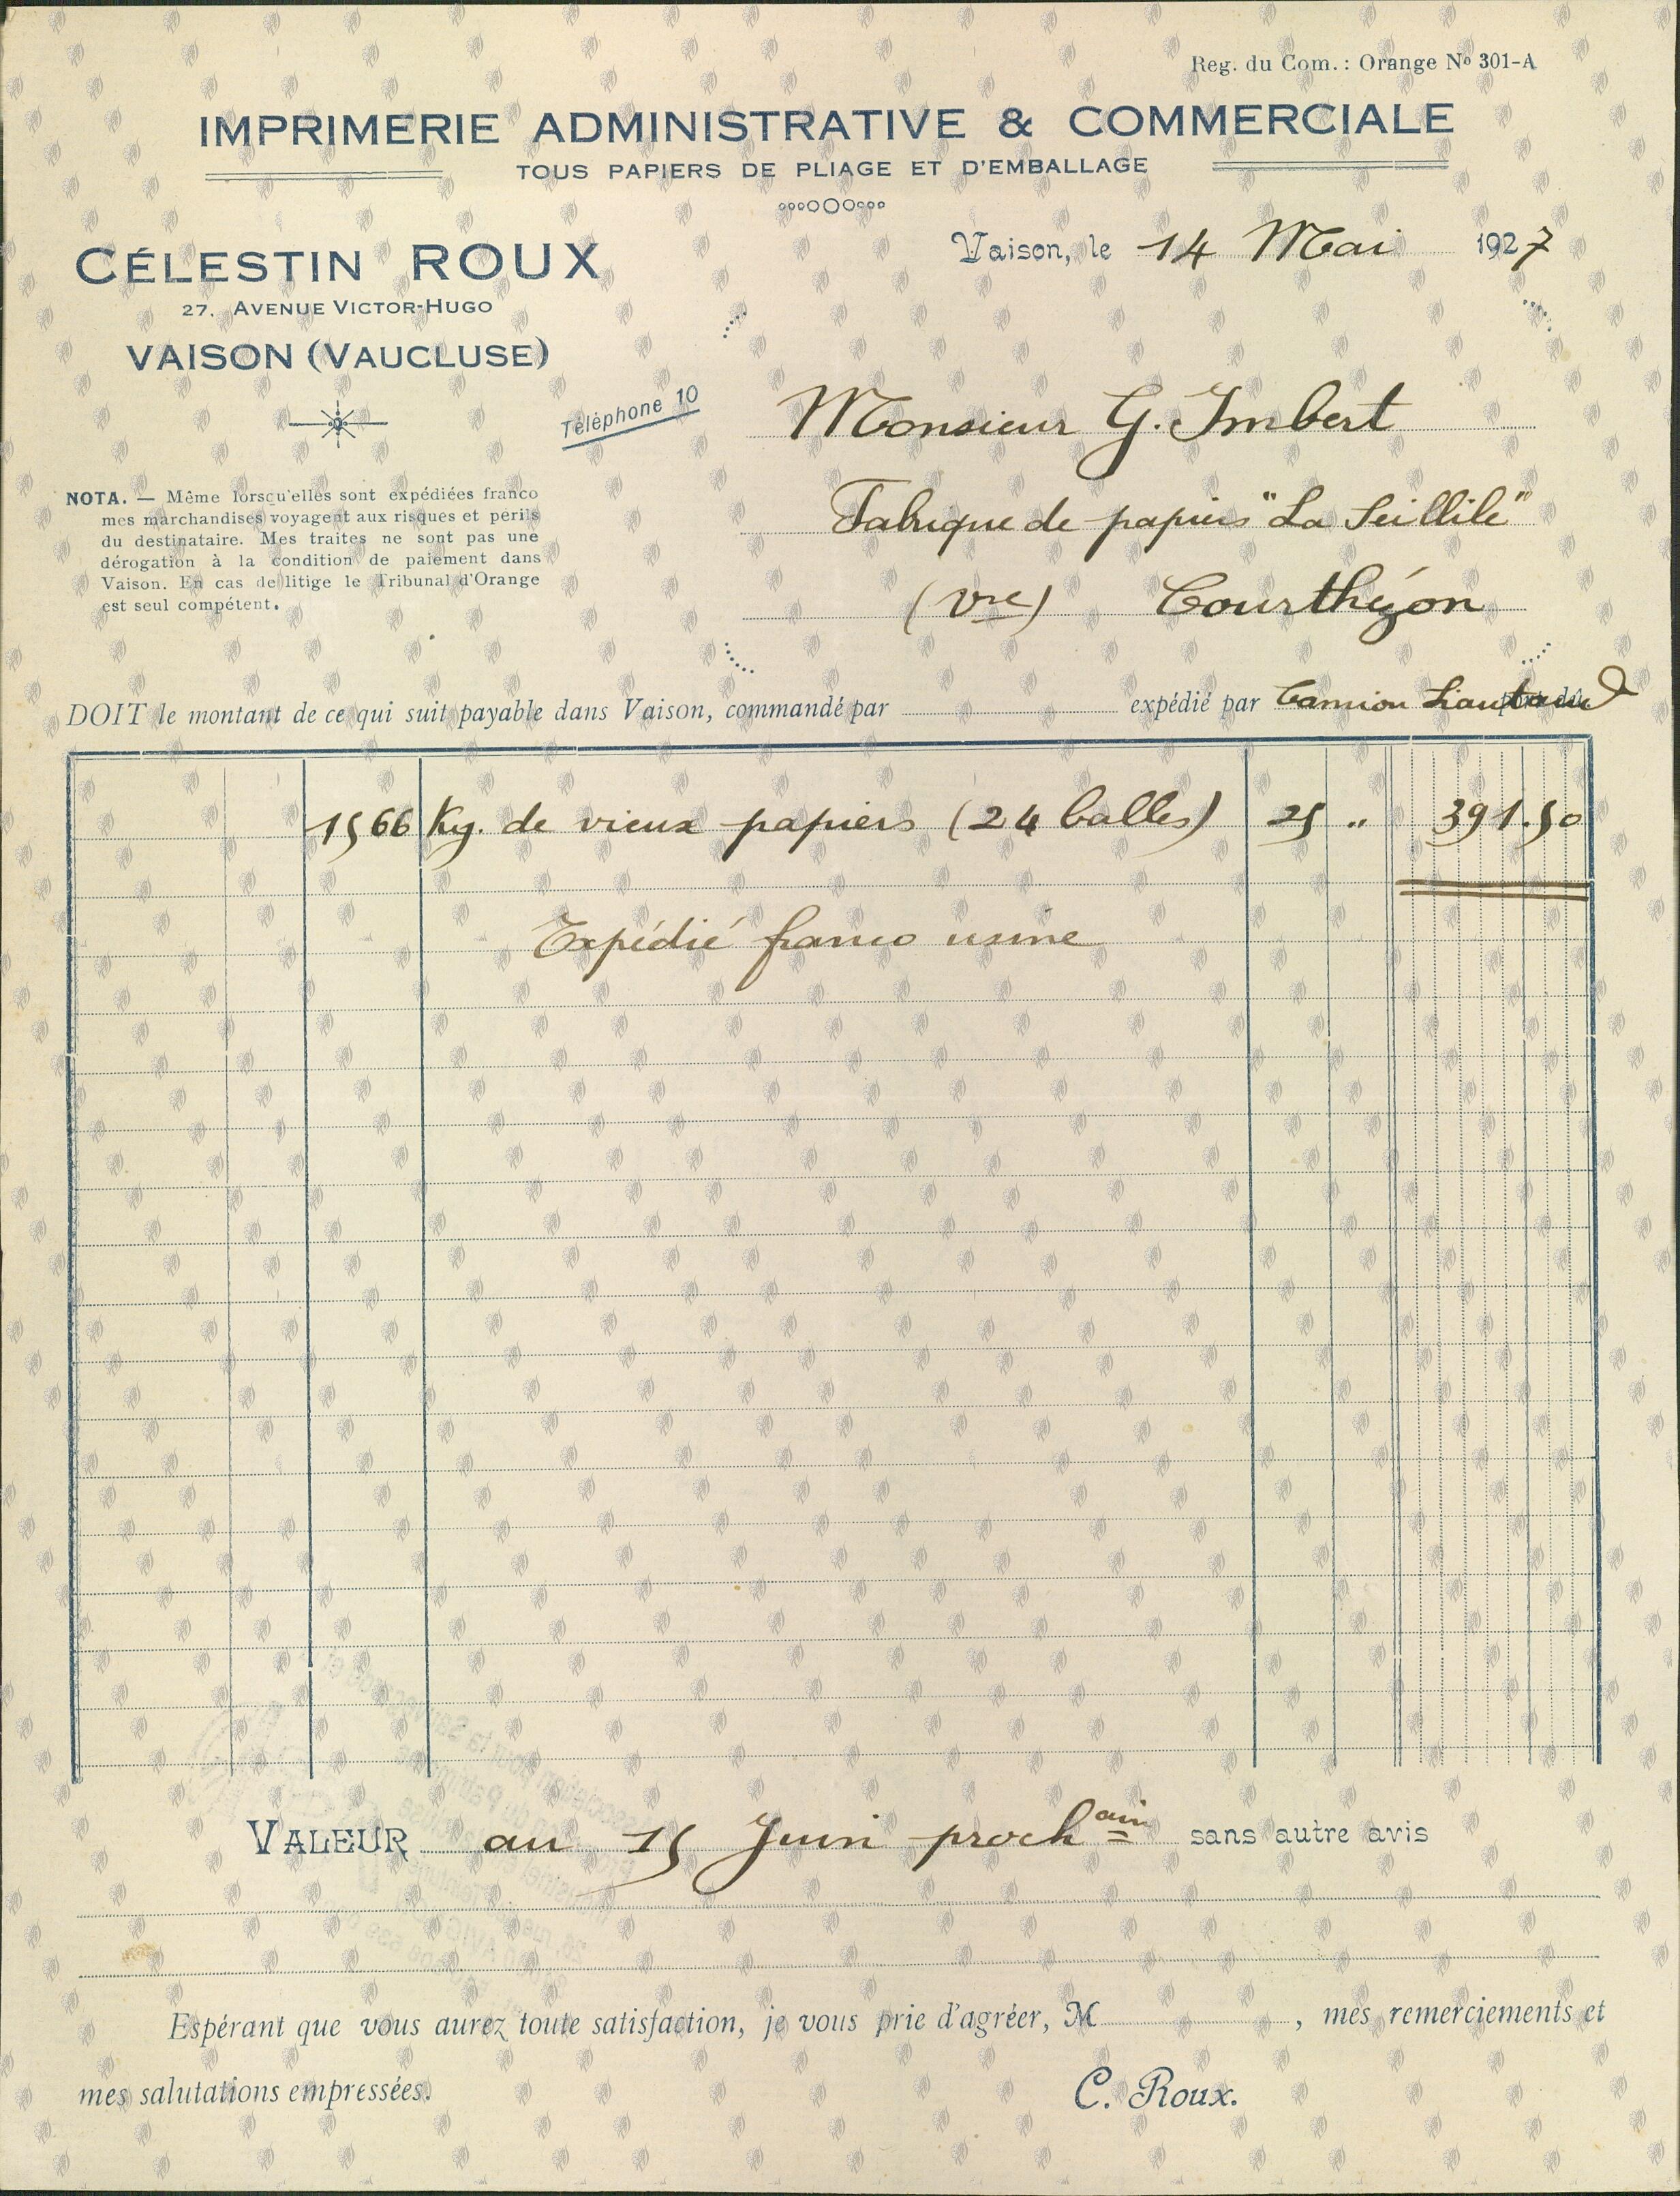 Reg. du Com. : Orange Nº 301-A
IMPRIMERIE ADMINISTRATIVE & COMMERCIALE
TOUS PAPIERS DE PLIAGE ET D'EMBALLAGE
CÉLESTIN ROUX
27, AVENUE VICTOR-HUGO
VAISON (VAUCLUSE)
Téléphone 10
Vaison, le 14 Mai 1927
Monsieur G. Imbert
Fabrique de papiers "La Seillile"
(Vse) Courthézon
NOTA. — Même lorsqu'elles sont expédiées franco
mes marchandises voyagent aux risques et périls
du destinataire. Mes traites ne sont pas une
dérogation à la condition de paiement dans
Vaison. En cas de litige le Tribunal d'Orange
est seul compétent.
DOIT le montant de ce qui suit payable dans Vaison, commandé par expédié par Camion Liautaud
1566 Kg. de vieux papiers (24 balles) 25 " 391.50
Expédié franco usine
VALEUR au 15 Juin prochain sans autre avis
Espérant que vous aurez toute satisfaction, je vous prie d'agréer, M , mes remerciements et
mes salutations empressées.
C. Roux.